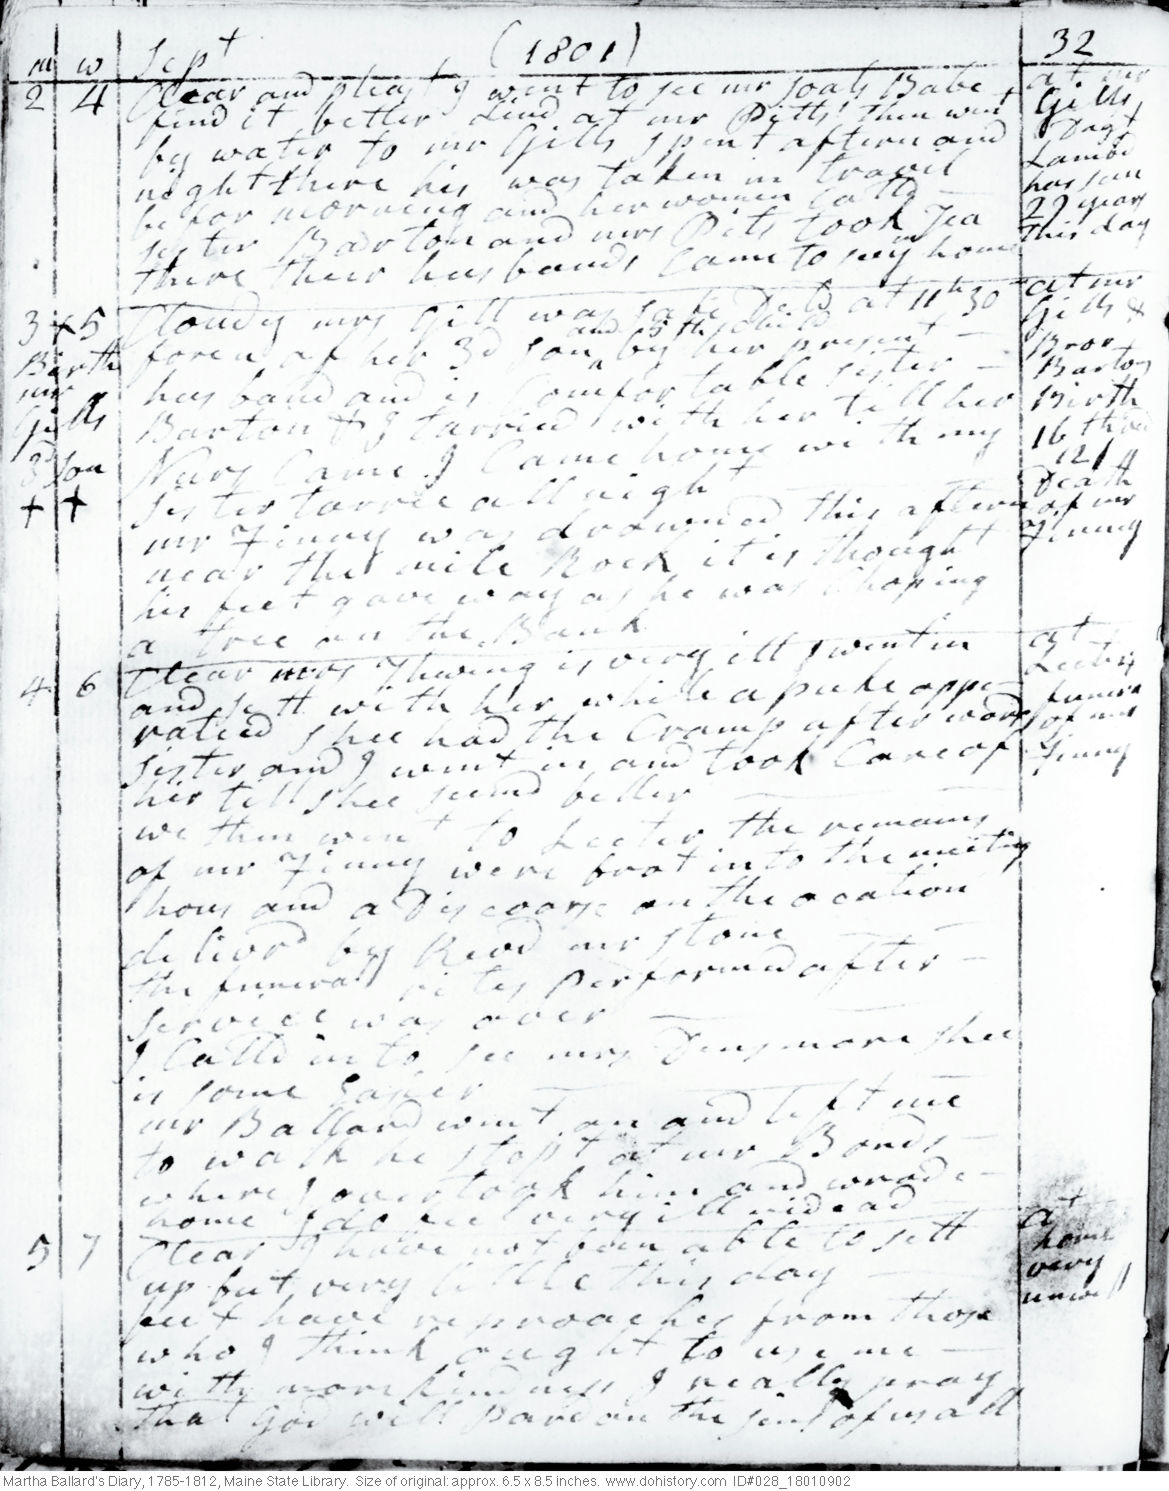 m w Sept (1801) 32
2 4 Clear and pleast I went to see mr Soals Babe
find it better Dind at mr Pitts then went
by water to mr Gills spent aftern and
night there his was taken in travil
befor morning and her women Calld
sister Barton and mrs Pits took Tea
there their husbands Came to see ym home
at mr
Gills
Dagt
Lambd
has been
29 years
this day
3 + 5 Cloudy mrs Gill was safe Deld at 11 h 30
foren of her 3d son and 5th Child by her present
husband and is Comfortable sister
Barton & I tarried with her till her
Nurs Came I Came home with my
sister tarree all night
mr Finny was drowned this aftern
near the mile Rock it is thought
his feet gave way as he was Choping
a tree on the Bank
Birth
mr
Gills
3d son
+ +
at mr
Gills &
Bror
Bartons
Birth
16th
Death
of mr
Finny
4 6 Clear mrs Thwing is very ill I went in
and sett with her while a puke oppe
rated shee had the Cramp afterwards
sister and I went in and took Care of
her till shee seemd better
we then went to Lecter the remains
of mr Finny were brot into the meeting
hous and a Discoars on the ocation
deliverd by Revd mr Stone
the funeral rites Performed after
service was over
I Calld in to see mrs Densmore shee
is some Easier
mr Ballard went on and left me
to walk he stopt at mr Bonds
where I overtook him and wrode
home I do feel very ill indead
at
Lecter
funera
of mr
Finny
5 7 Clear I have not been able to sett
up but very little this day
but have reproaches from those
who I think ought to use me
with more kindness I really pray
that God will Pardon the sins of us all
at
home
very
unwell
Martha Ballard's Diary, 1785-1812, Maine State Library. Size of original: approx. 6.5 x 8.5 inches. www.dohistory.com ID#028_18010902